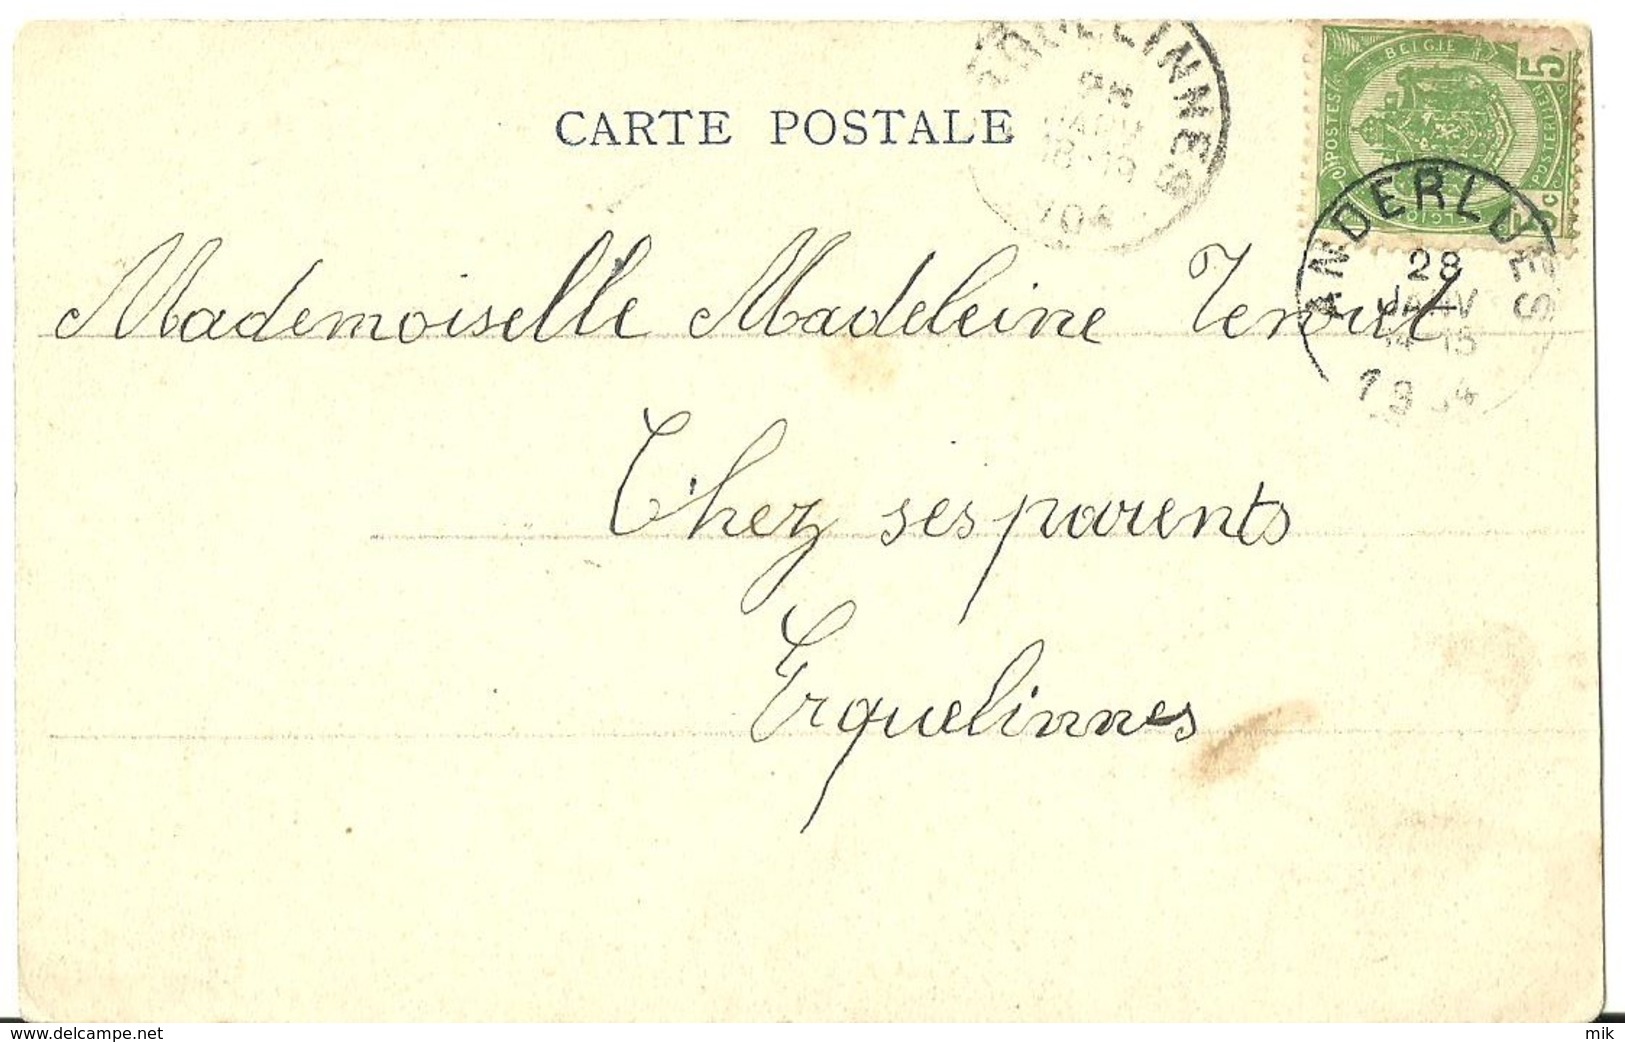 CARTE POSTALE
ERQUELINNES
28
JANV
18-19
04
POSTES
BELGIE
5
POSTERIJEN
BELGIQUE
5c
ANDERLUES
28
JANV
14-15
1904
Mademoiselle Madeleine
Chez ses parents
Erquelinnes
www.delcampe.net
mik